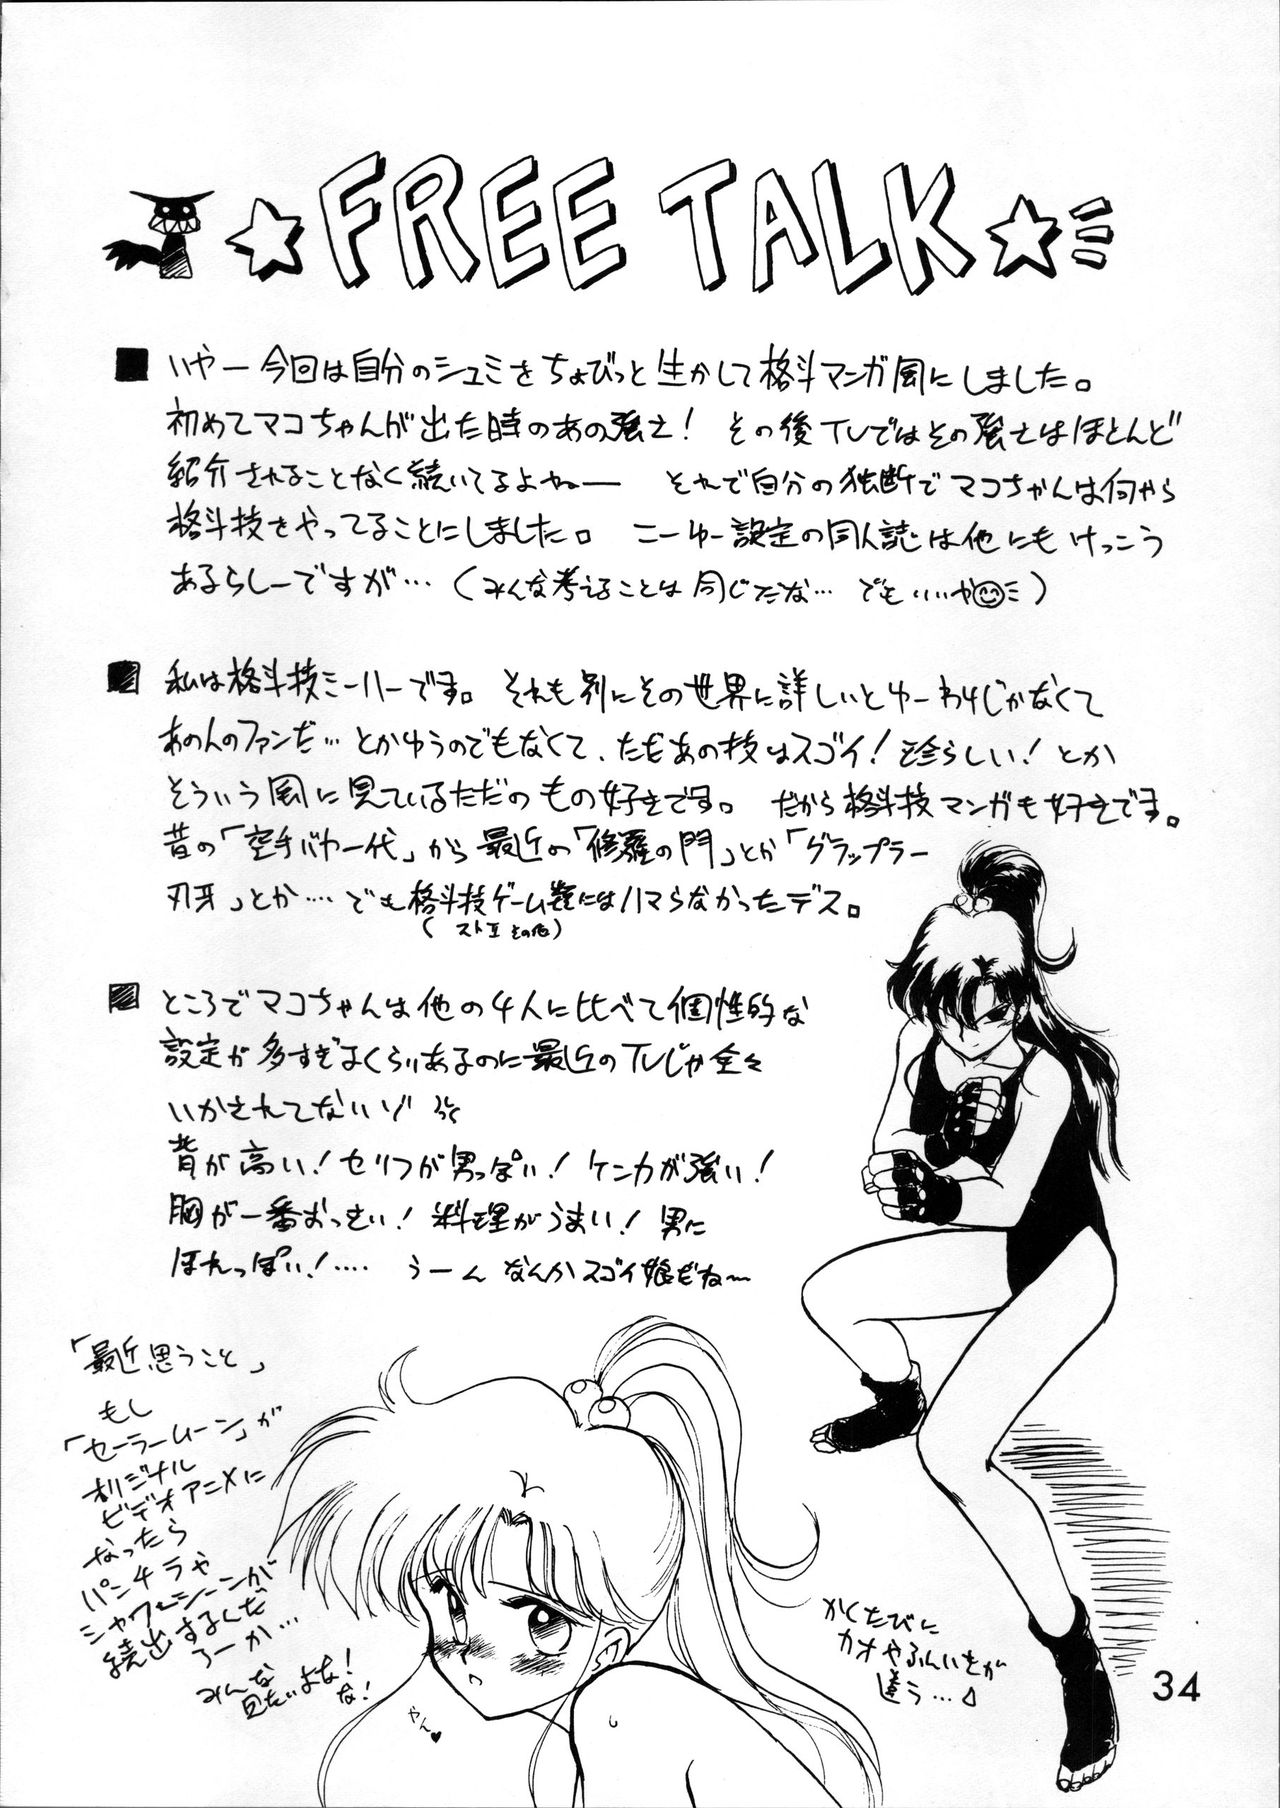 FREE TALK
いやー今回は自分のシュミをちょびっと生かして格斗マンガ風にしました。
初めてマコちゃんが出た時のあの強さ! その後TVではその強さはほとんど
紹介されることなく続いてるよねー それで自分の独断でマコちゃんは何やら
格斗技をやってることにしました。 こーゆー設定の同人誌は他にもけっこう
あるらしーですが…(みんな考えることは同じだな… でもいいや)
私は格斗技ミーハーです。それも別にその世界に詳しいとゆーわけじゃなくて
あの人のファンだ…とかゆうのでもなくて、ただあの技はスゴイ!珍らしい!とか
そういう風に見ているただのもの好きです。だから格斗技マンガも好きです。
昔の「空手バカ一代」から最近の「修羅の門」とか「グラップラー
刃牙」とか…でも格斗技ゲーム類にはハマらなかったデス。
(ストⅡ その他)
ところでマコちゃんは他の4人に比べて個性的な
設定が多すぎるくらいあるのに最近のTVじゃ全々
いかされてないゾ
背が高い!セリフが男っぽい!ケンカが強い!
胸が一番おっきい!料理がうまい!男に
ほれっぽい!…. うーん なんかスゴイ娘だね〜
「最近思うこと」
もし
「セーラームーン」が
オリジナル
ビデオアニメに
なったら
パンチラや
シャワーシーンが
続出するんだ
ろーか…
みんな
見たいよな!
な!
やん♥
かくたびに
カオやふんいきが
違う…
34